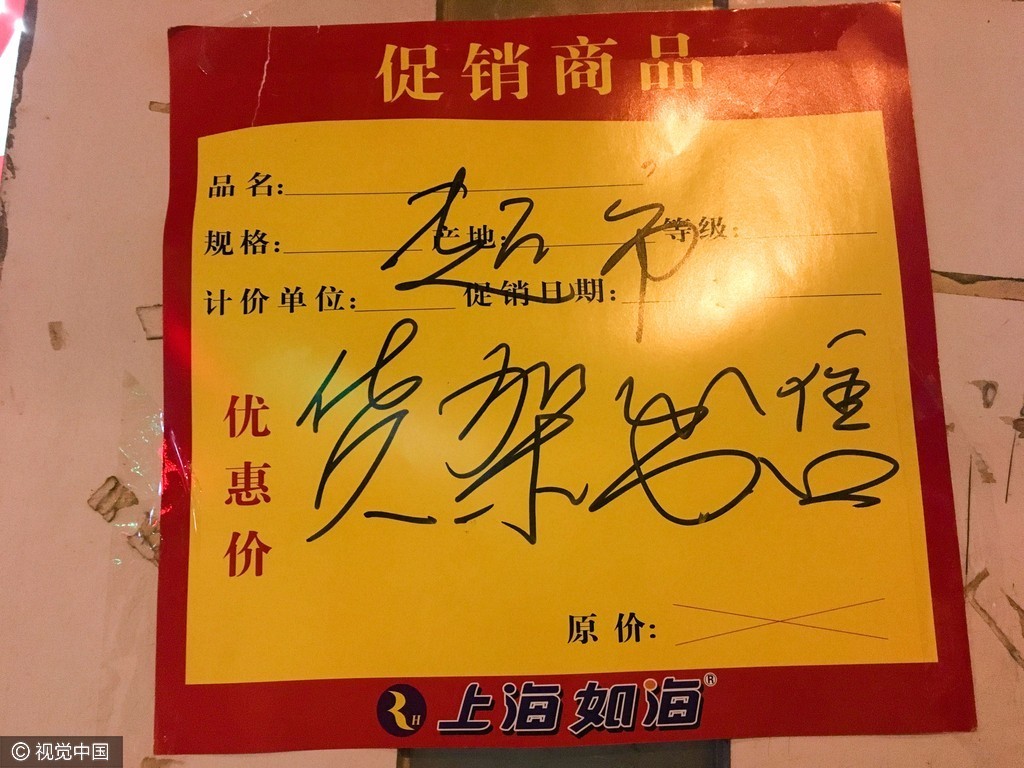 促销商品
品名:
规格: 产地: 等级:
计价单位: 促销日期:
超市
货架出售
优惠价
原价:
RH 上海如海®
© 视觉中国